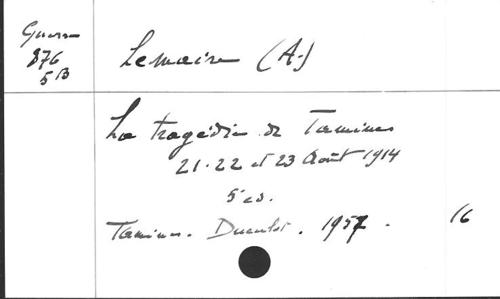 Guerre
876
5 B
Lemaire (A.)
La tragédie de Tamines
21. 22 et 23 Août 1914
5e éd.
Tamines. Duculot. 1957. 16